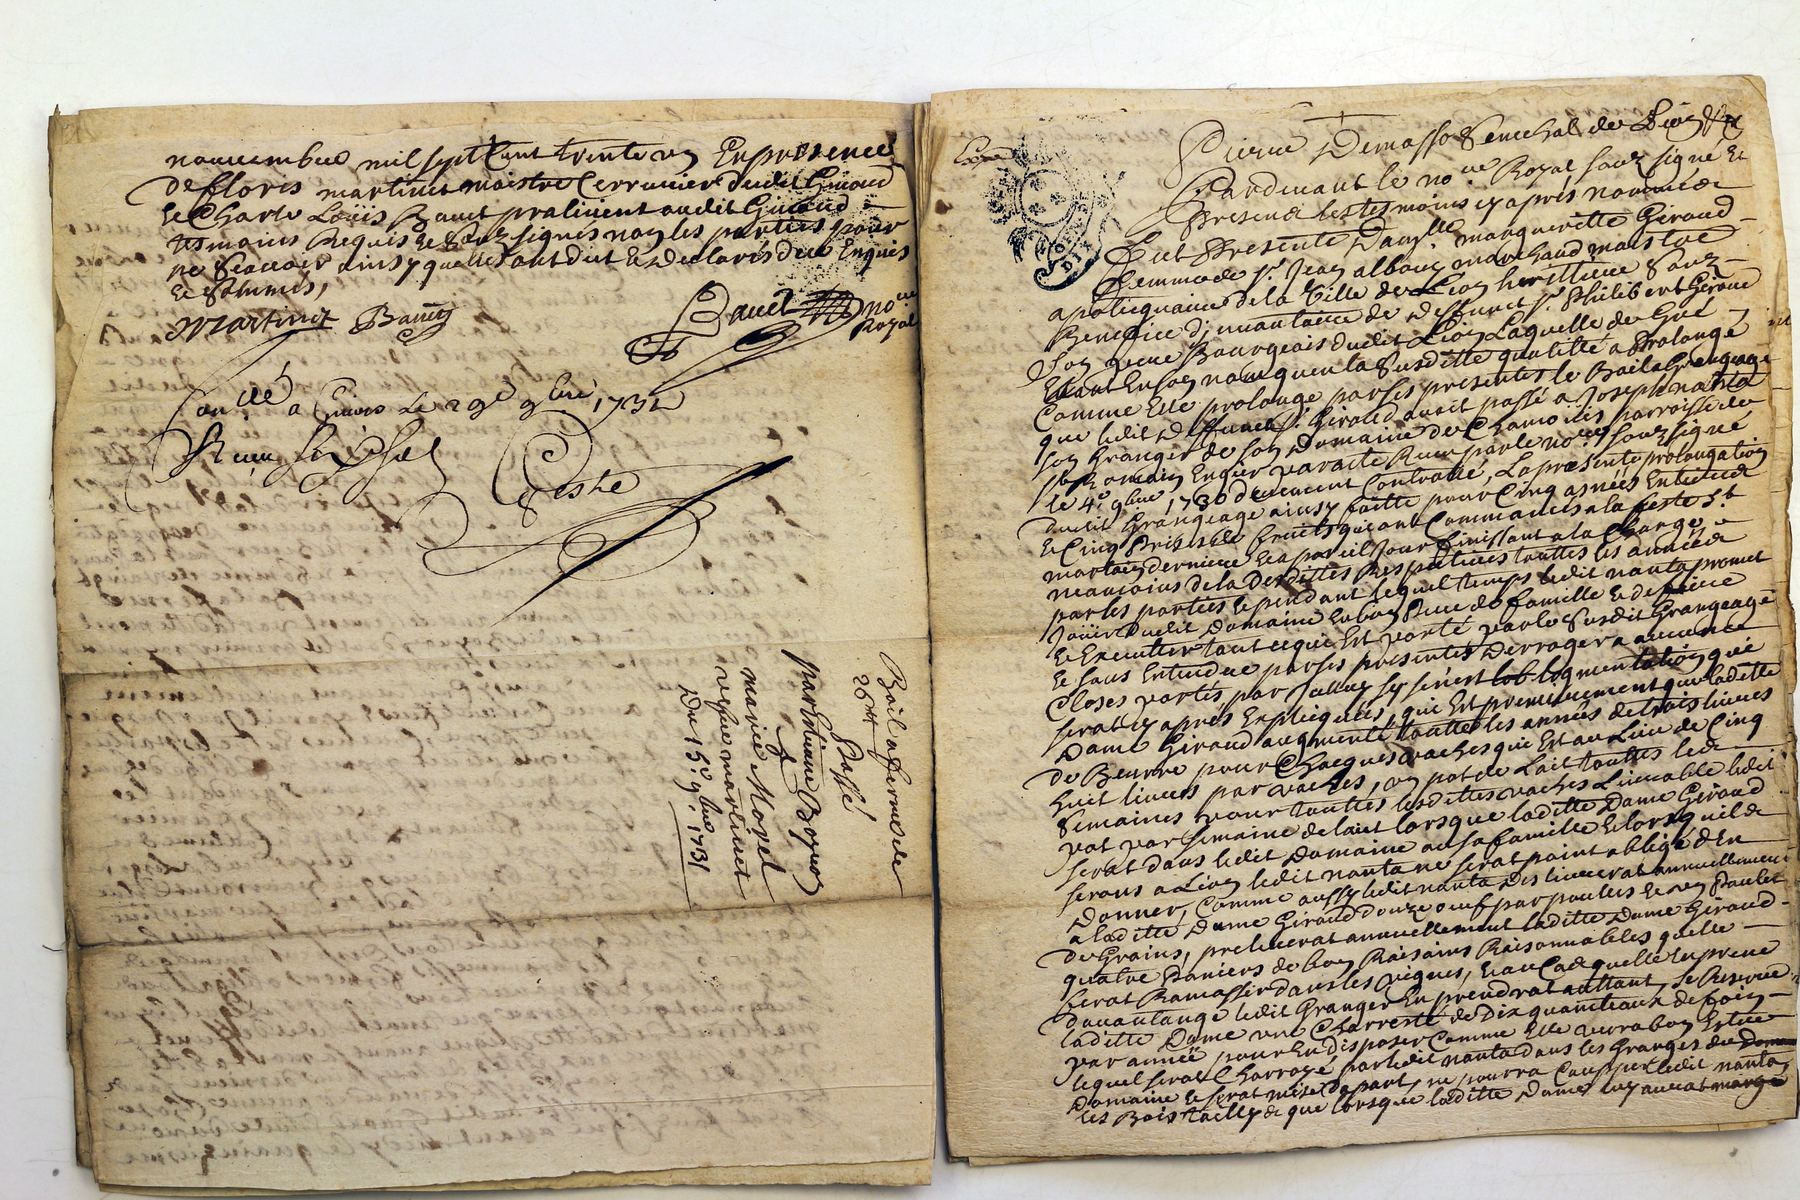 novembre mil sept cent trente un En presence
de floris martinet maistre Cerrurier dudit Givord
et Charle Loüis Bauet praticient audit Givord
tesmoins Requis et Souz signes non les parties pour
ne Scavoir ainsy quelles ont dit et declarés de ce Enquis
et Sommés,
Martinet Bauet
Bauet no.re
Royal
Con.llé a Givors Le 29e 9bre 1731
Bail a ferme de
26
Passé
par Etienne Boyron
a
marie Morel
vefve martinet
Du 15e 9bre 1731
Expé
Pierre Demasso Senechal de Lion
Pardevant le no.re Royal souz signé Et
Presend les tesmoins cy apres nommés
fut Presente Dam.lle margueritte Giroud
femme de s.r Jean albouy marchand maistre
apoticquaire de la Ville de Lion heritiere Souz
Benefice d'inuantaire de deffunct s.r Philibert Giroud
son frere Bourgeois dudit Lion Laquelle de Gré
Etant En son nom qu'en la Susditte qualitté a Prolongé
Comme Elle prolonge par ses presentes le Bail a Grangeage
que ledit Deffunct s.r Giroud avoit passé a Joseph nanta
son Granger de son Domaine de Chamoiles parroisse de
st Romain En Gier par acte Receu par le no.re souz signé
le 4e 9bre 1730 deuement Controllé, La presente prolongation
dudit Grangeage ainsy faitte pour Cinq années Entieres
et Cinq Prises de fruits qui ont Commancés a la feste st
martin derniere Et a pareil Jour finissant a la Charge
neanmoins de la Desdittes Respectives touttes les années
par les parties et pendant lequel temps ledit nanta promet
Joüir dudit Domaine En bon Pere de famille et de faire
et Executter tout ce qui Est porté par le Susdit Grangeage
et sans Entendre par ses presentes derroger a aucunes
Closes portés par Jcelluy sy sinest lob logmentation qui
serat cy apres Expliequée, qui Est premierement que laditte
Dame Giroud augmente touttes les années de trois livres
de Beurre pour Chacques vaches qui Est au Lieu de Cinq
huit livres par vaches, un pot de Lait touttes les
Semaines pour touttes lesdittes vaches Liurable ledit
pot par semaine de lait lorsque laditte Dame Giroud
serat dans ledit Domaine ou sa famille et lorsquils
serons a Lion ledit nanta ne serat point obligé d'En
Donner, Comme aussy ledit nanta deslivrerat annuellement
a laditte Dame Giroud douze oeuf par poulles et un Poulet
de Grains, prelevera annuellement laditte Dame Giroud
quatre Paniers de bon Raisains Raisonnables quelle
ferat Ramasser dans les vignes, Et au Cas quelle En prene
davantange ledit Granger En prendrat auttant, se Reserve
laditte Dame une Charrestée de Dix quainteaux de foin
par année pour En disposer Comme Elle verra bon Estre
lequel serat Charroyé par ledit nanta dans les Granges du
Domaine et serat mise a part, ne pourra Coupper ledit nanta
les Bois taillys que lorsque laditte Dame luy aurat marqé